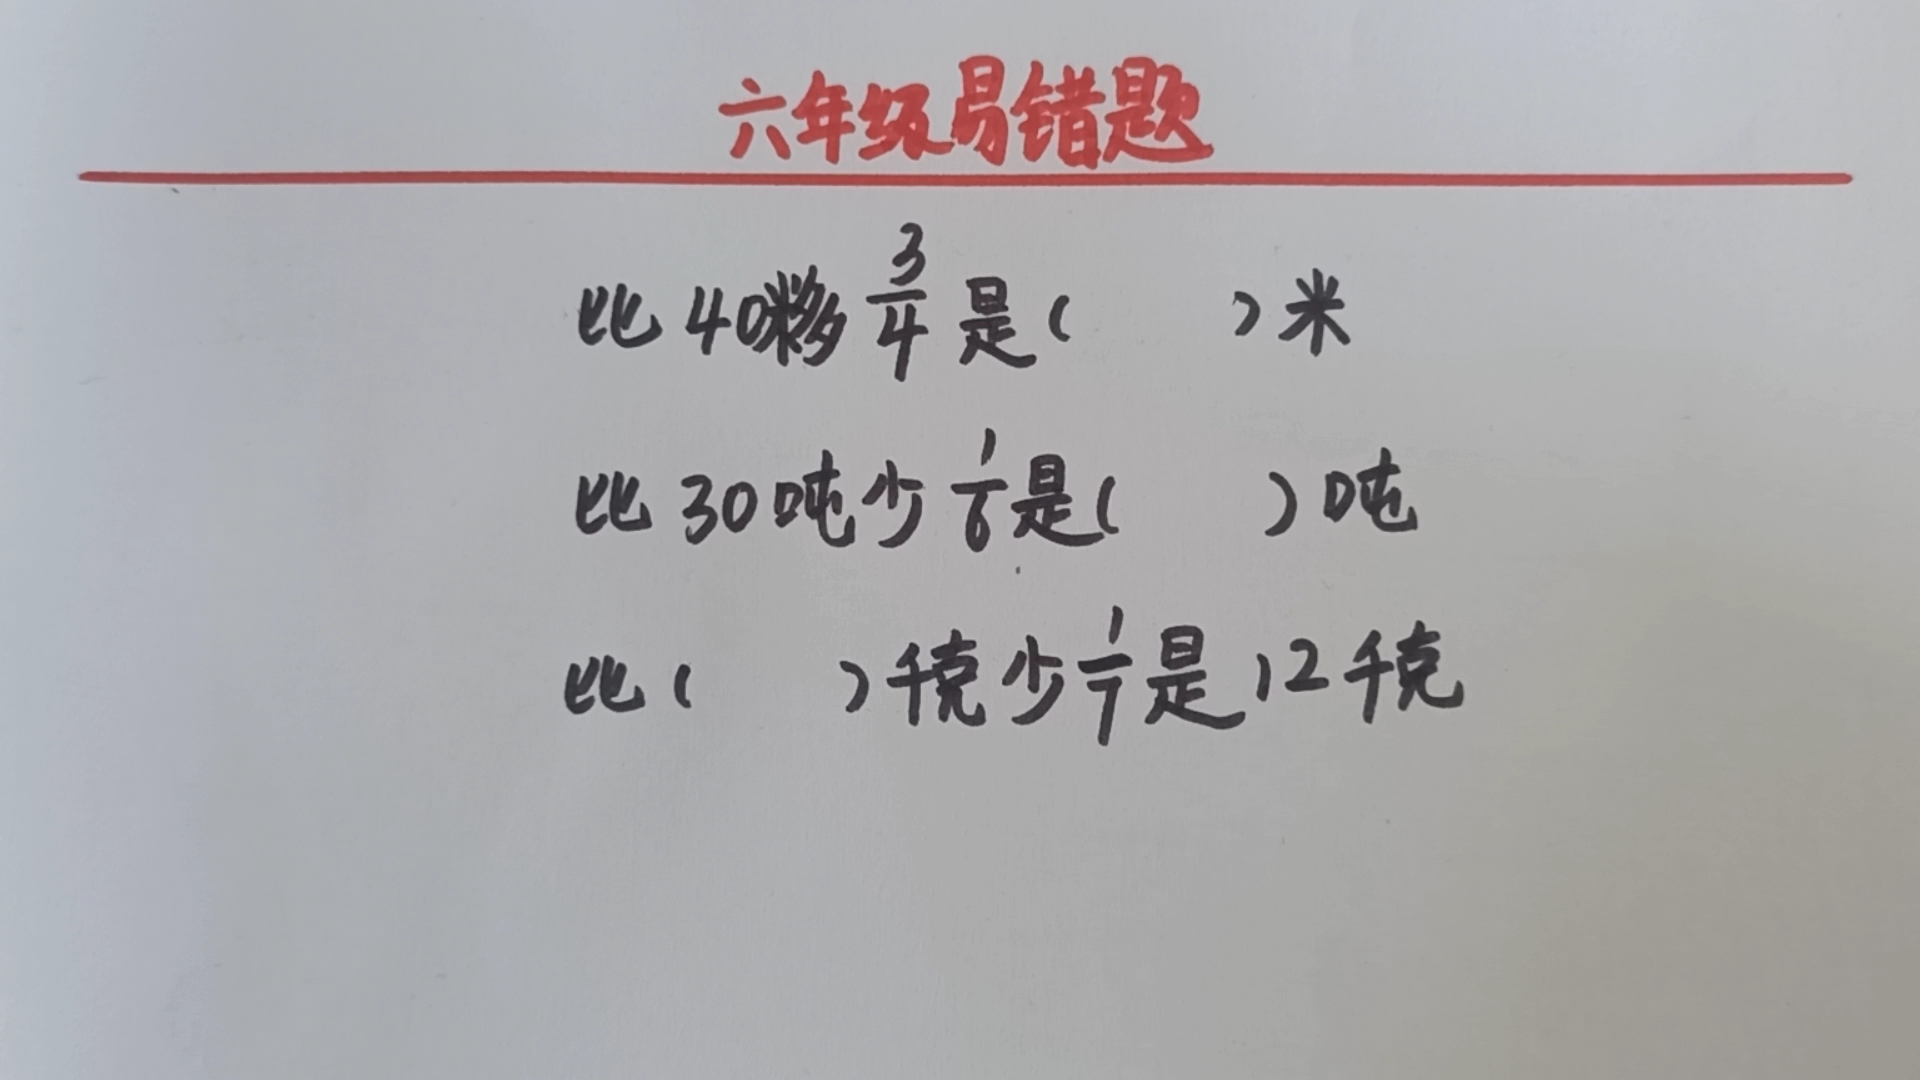 六年级易错题
比40米多3/4是( )米
比30吨少1/6是( )吨
比( )千克少1/7是12千克